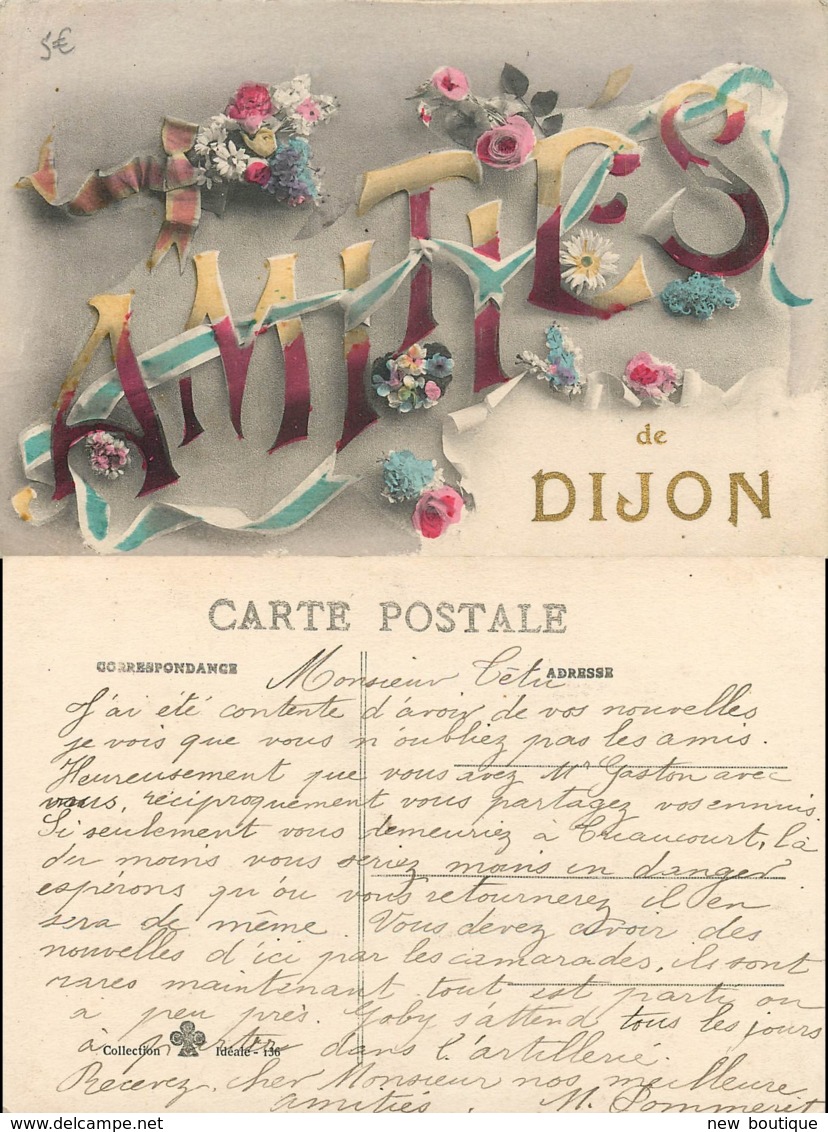 5€
AMITIÉS
de
DIJON
CARTE POSTALE
CORRESPONDANCE
ADRESSE
Monsieur Têtu
J'ai été contente d'avoir de vos nouvelles
je vois que vous n'oubliez pas les amis.
Heureusement que vous avez Mr Gaston avec
vous, réciproquement vous partagez vos ennuis
Si seulement vous demeuriez à, là
du moins vous seriez moins en danger
espérons qu'où vous retournerez il en
sera de même. Vous devez avoir des
nouvelles d'ici par les camarades, ils sont
rares maintenant tout est parti ou
a peu près. Goby s'attend tous les jours
à partir dans l'artillerie.
Collection Idéale - 136
Recevez, cher Monsieur nos meilleure
amitiés. M. Pommeret
new boutique